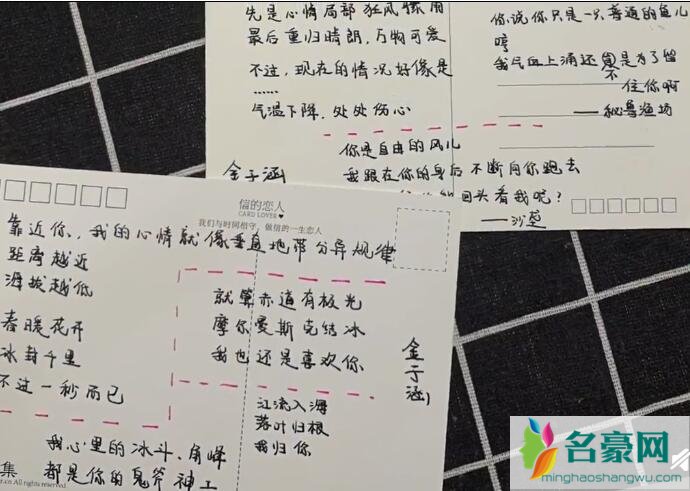 先是心情局部狂风骤雨
最后重归晴朗，万物可爱
不过，现在的情况好像是
……
气温下降，处处伤心
你说你只是一只普通的鱼儿
哼
我气血上涌还不是为了留
住你啊
——秘鲁渔场
你是自由的风儿
我跟在你的身后不断向你跑去
回头看我呢？
——沙堡
金子涵
信的恋人
CARD LOVER
我们与时间相守，做信的一生恋人
靠近你，我的心情就像垂直地带分异规律
距离越近
海拔越低
春暖花开
冰封千里
不过一秒而已
就算赤道有极光
摩尔曼斯克结冰
我也还是喜欢你
金子涵
江流入海
落叶归根
我归你
我心里的冰斗、角峰
都是你的鬼斧神工
集
All rights reserved.
名豪网
minghaoshangwu.com